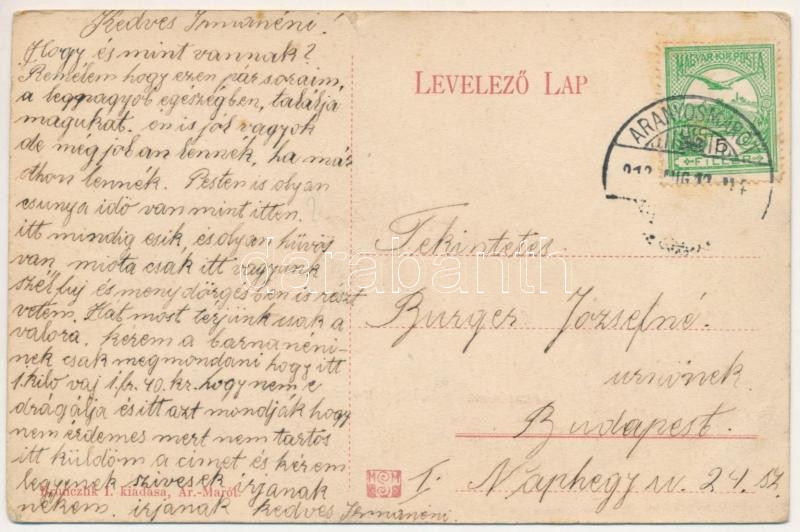 Kedves Irmanéni!
Hogy és mint vannak?
Remélem hogy ezen pár soraim,
a legnagyob egészégben, találja
magukat. én is jól vagyok
de még joban lennék, ha má
othon lennék. Pesten is olyan
csunya idő van mint itten.
itt mindig esik, és olyan hűvös
van, miota csak itt vagyunk
szél fuj és menydörgésben is részt
vetem. Hát most térjünk csak a
valora. kérem a barnanéni-
nek csak megmondani hogy itt
1. kiló vaj 1 fr. 40. kr. hogy nem e
drágálja és itt azt mondják hogy
nem érdemes mert nem tartós
itt küldöm a cimet és kérem
legyenek szivesek irjanak
nekem. irjanak kedves Irmanéni.
Brunczlik I. kiadása, Ar.-Marót.
LEVELEZŐ LAP
MAGYAR KIR. POSTA
FILLÉR
ARANYOSMARÓT
912 AUG 12
Tekintetes
Burger Józsefné.
urnőnek
Budapest.
I. Naphegy u. 24. sz.
darabanth